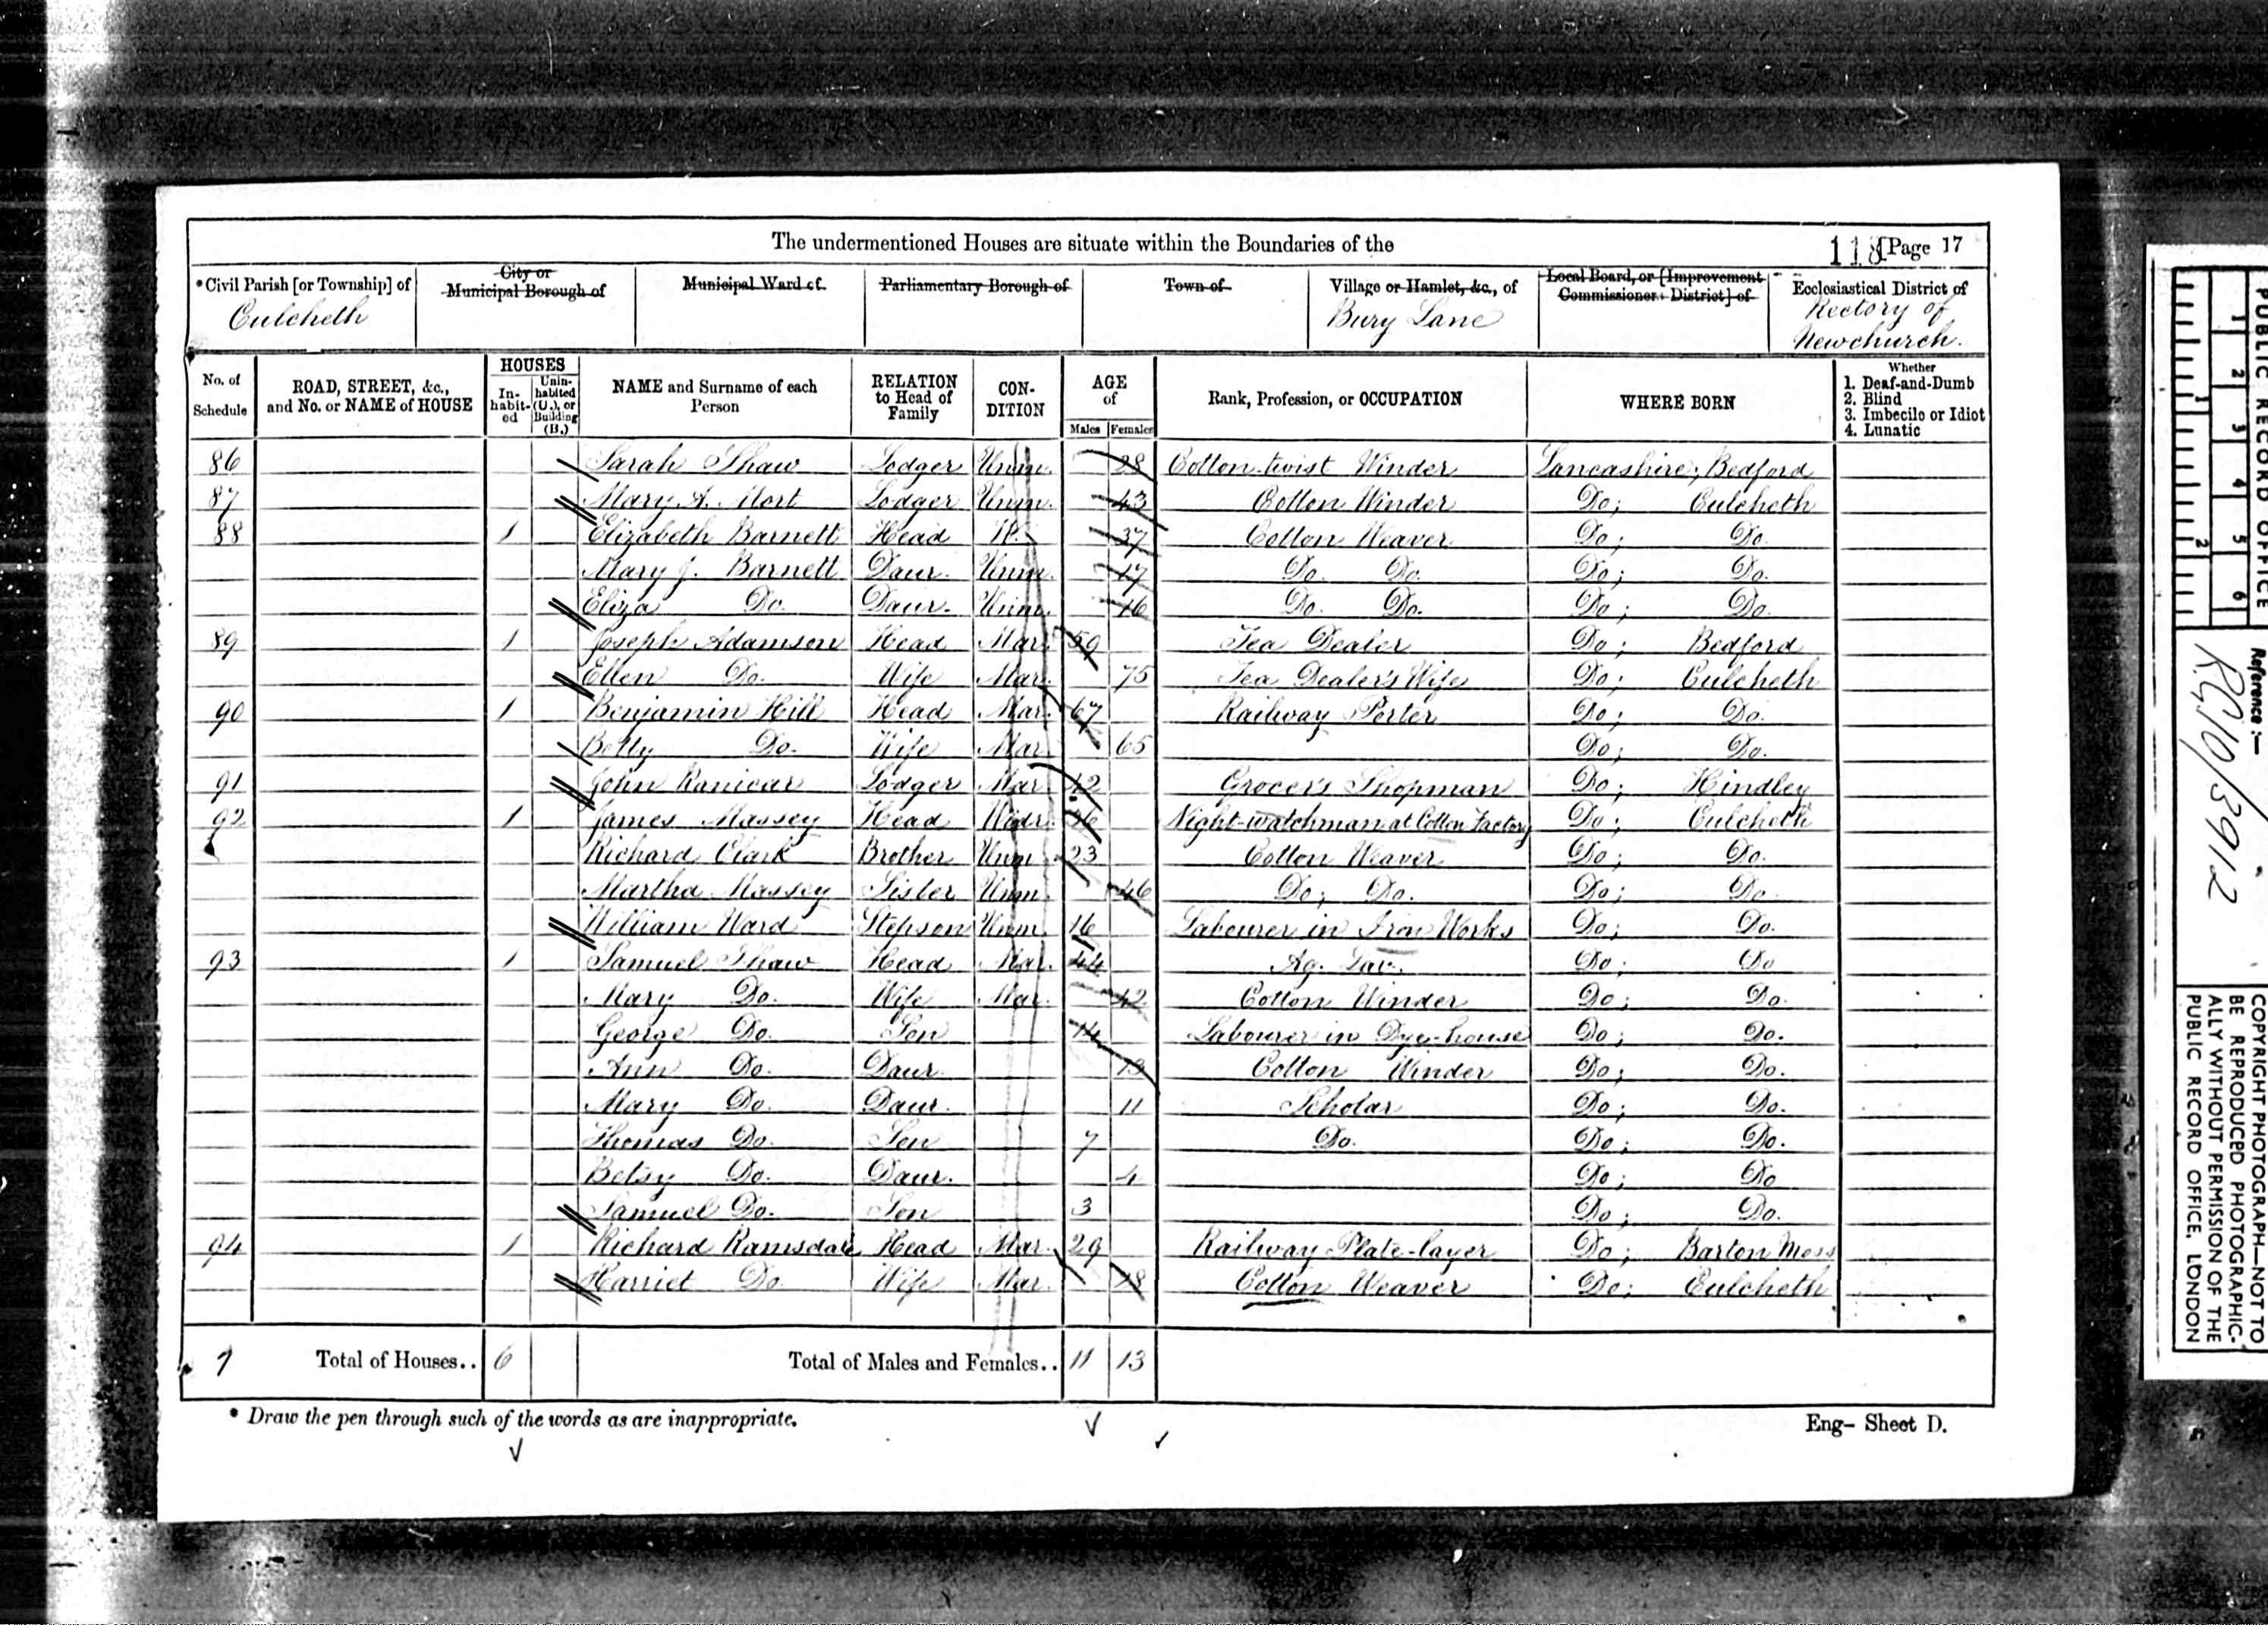 The undermentioned Houses are situate within the Boundaries of the
118 [Page 17
*Civil Parish [or Township] of Culcheth
City or Municipal Borough of
Municipal Ward of
Parliamentary Borough of
Town of
Village or Hamlet, &c., of Bury Lane
Local Board, or [Improvement Commissioners District] of
Ecclesiastical District of Rectory of Newchurch.
No. of Schedule
ROAD, STREET, &c., and No. or NAME of HOUSE
HOUSES
In-habit-ed
Unin-habited (U.), or Building (B.)
NAME and Surname of each Person
RELATION to Head of Family
CON-DITION
AGE of
Males Females
Rank, Profession, or OCCUPATION
WHERE BORN
Whether
1. Deaf-and-Dumb
2. Blind
3. Imbecile or Idiot
4. Lunatic
86 Sarah Shaw Lodger Unm. 28 Cotton-twist Winder Lancashire; Bedford
87 Mary A. Mort Lodger Unm. 43 Cotton Winder Do; Culcheth
88 1 Elizabeth Barnett Head W. 37 Cotton Weaver Do; Do.
Mary J. Barnett Daur. Unm. 17 Do. Do. Do; Do.
Eliza Do. Daur. Unm. 16 Do. Do. Do; Do.
89 1 Joseph Adamson Head Mar. 59 Tea Dealer Do; Bedford
Ellen Do. Wife Mar. 75 Tea Dealer's Wife Do; Culcheth
90 1 Benjamin Hill Head Mar. 67 Railway Porter Do; Do.
Betty Do. Wife Mar. 65 Do; Do.
91 John Ranicar Lodger Mar. 42 Grocer's Shopman Do; Hindley
92 1 James Massey Head Widr. 56 Night-watchman at Cotton Factory Do; Culcheth
Richard Clark Brother Unm. 23 Cotton Weaver Do; Do.
Martha Massey Sister Unm. 46 Do; Do. Do; Do.
William Ward Stepson Unm. 16 Labourer in Iron Works Do; Do.
93 1 Samuel Shaw Head Mar. 44 Ag. Lab. Do; Do
Mary Do. Wife Mar. 42 Cotton Winder Do; Do.
George Do. Son 14 Labourer in Dye-house Do; Do.
Ann Do. Daur. Cotton Winder Do; Do.
Mary Do. Daur. 11 Scholar Do; Do.
Thomas Do. Son 7 Do. Do; Do.
Betsy Do. Daur. 4 Do; Do
Samuel Do. Son 3 Do; Do.
94 1 Richard Ramsdale Head Mar. 29 Railway Plate-layer Do; Barton Moss
Harriet Do. Wife Mar. 18 Cotton Weaver Do; Culcheth
7 Total of Houses.. 6 Total of Males and Females.. 11 13
* Draw the pen through such of the words as are inappropriate.
Eng- Sheet D.
PUBLIC RECORD OFFICE
1 2 3 4 5 6
1 2
Reference:-
RG10/3912
COPYRIGHT PHOTOGRAPH—NOT TO
BE REPRODUCED PHOTOGRAPHIC-
ALLY WITHOUT PERMISSION OF THE
PUBLIC RECORD OFFICE, LONDON